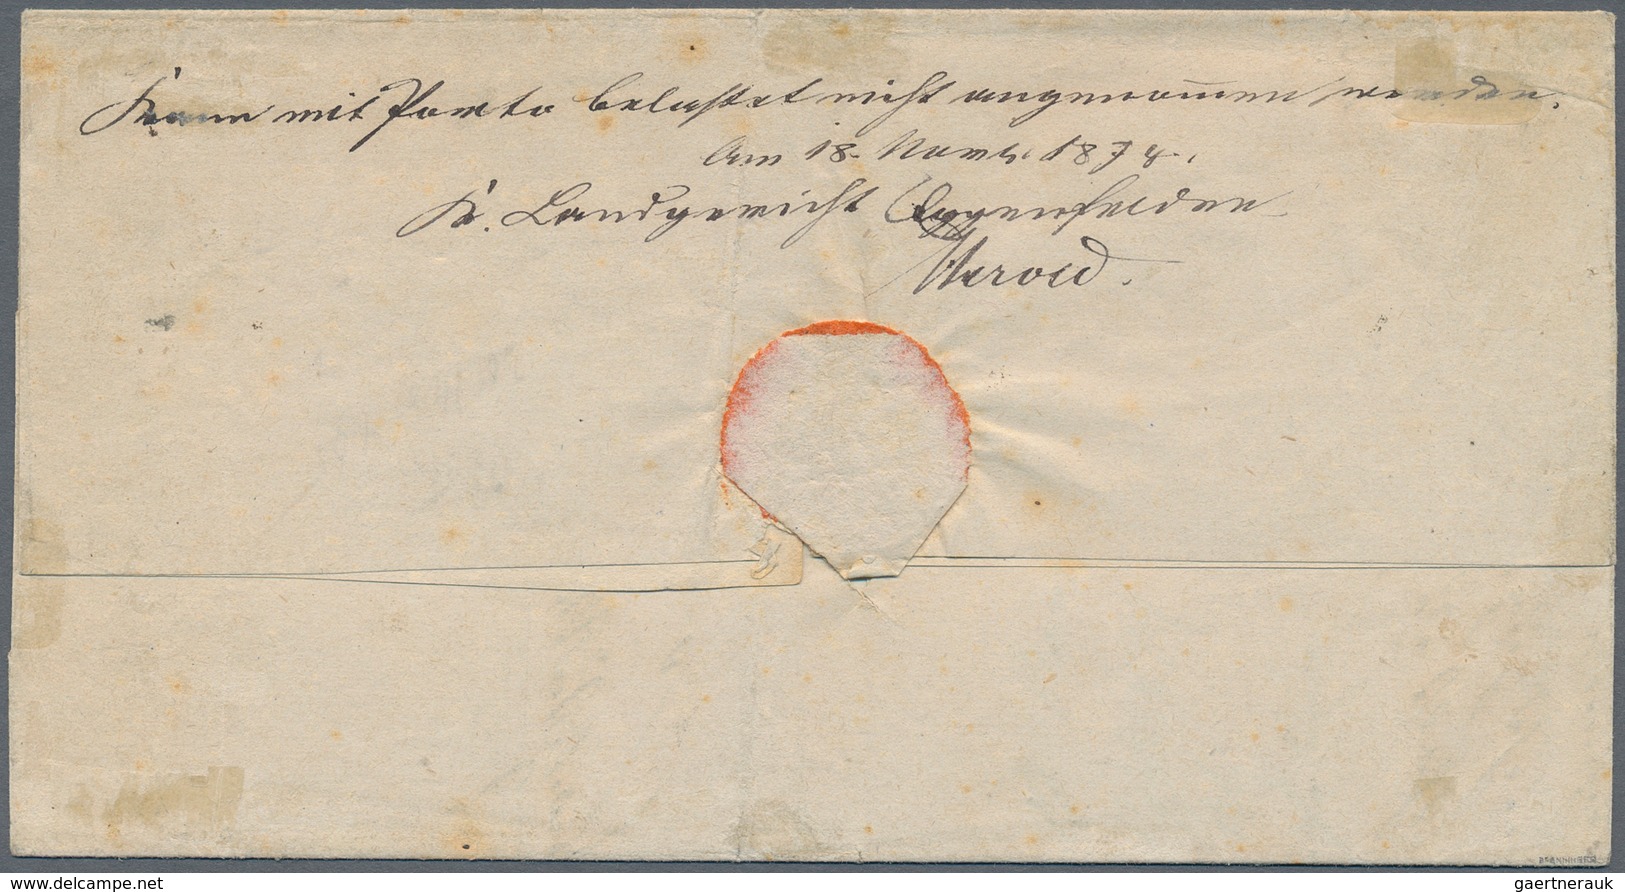 Kann mit Porto belastet nicht angenom̅en werden.
Am 18. Novbr. 1874.
K. Landgericht Eggenfelden
Herold.
delcampe.net
gaertnerauk